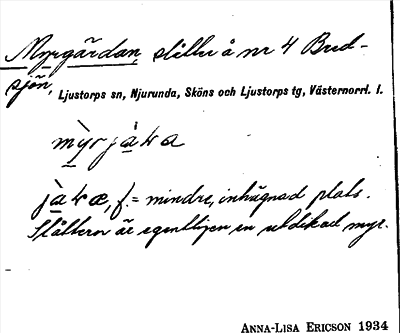 Myrgärdan, slåtter å nr 4 Bred-
sjön, Ljustorps sn, Njurunda, Sköns och Ljustorps tg, Västernorrl. l.
mỳrjàɬa
jàɬæ, f. = mindre, inhägnad plats.
Slåttern är egentligen en utdikad myr.
ANNA-LISA ERICSON 1934